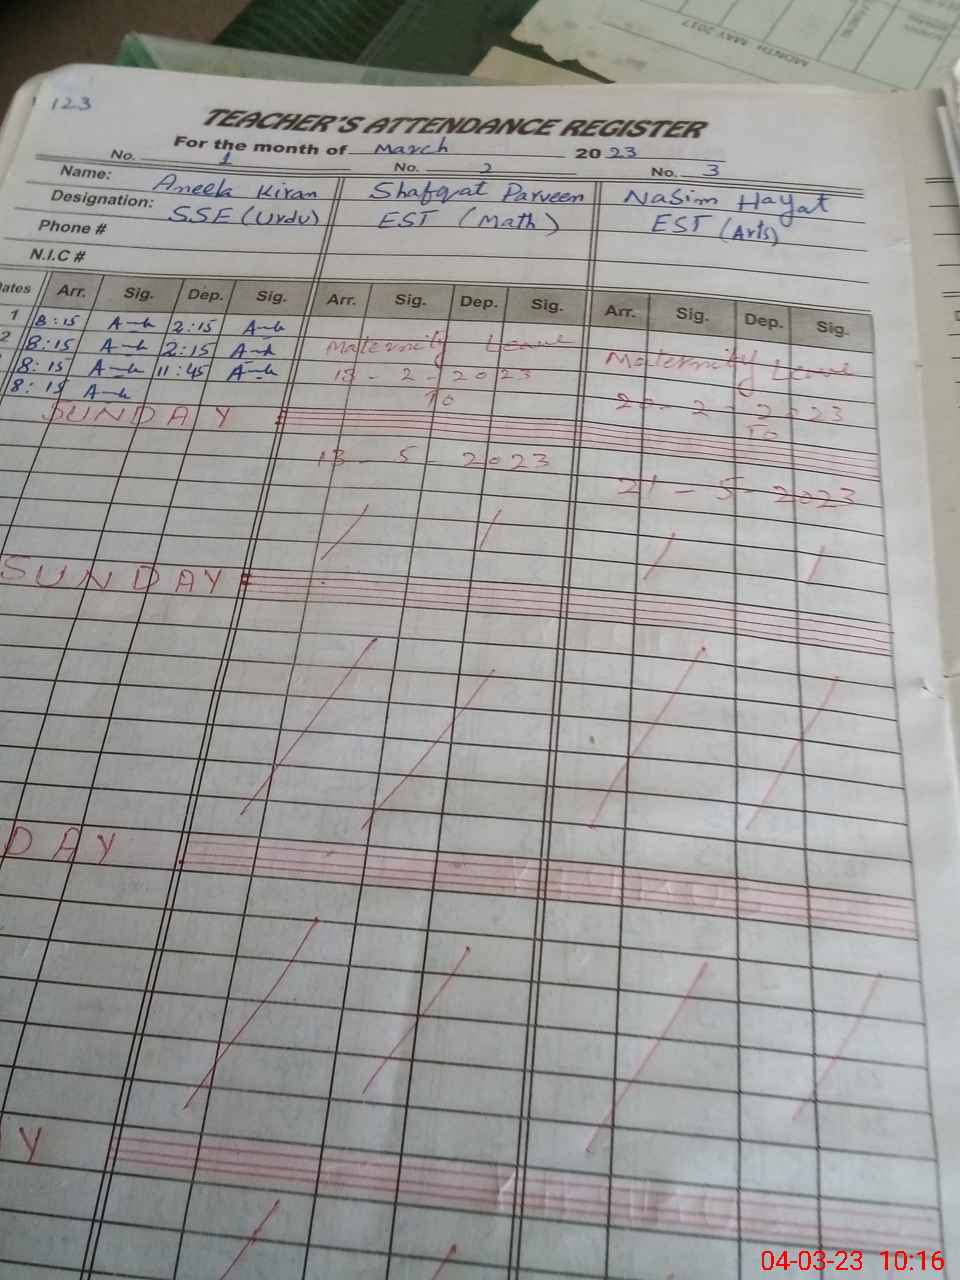 MONTH MAY 2017
123
TEACHER'S ATTENDANCE REGISTER
For the month of March 2023
No. 1 No. 2 No. 3
Name: Aneela Kiran Shafqat Parveen Nasim Hayat
Designation: SSE (Urdu) EST (Math) EST (Arts)
Phone #
N.I.C #
Dates Arr. Sig. Dep. Sig. Arr. Sig. Dep. Sig. Arr. Sig. Dep. Sig.
1 8:15 2:15
2 8:15 2:15 Maternity Leave Maternity Leave
8:15 11:45 13-2-2023
8:15 To 20-2-2023
SUNDAY To
13-5-2023
21-5-2023
SUNDAY
DAY
Y
04-03-23 10:16